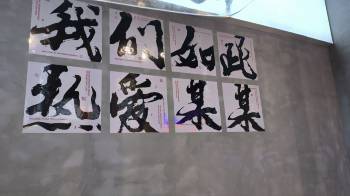 我们如此
热爱某某